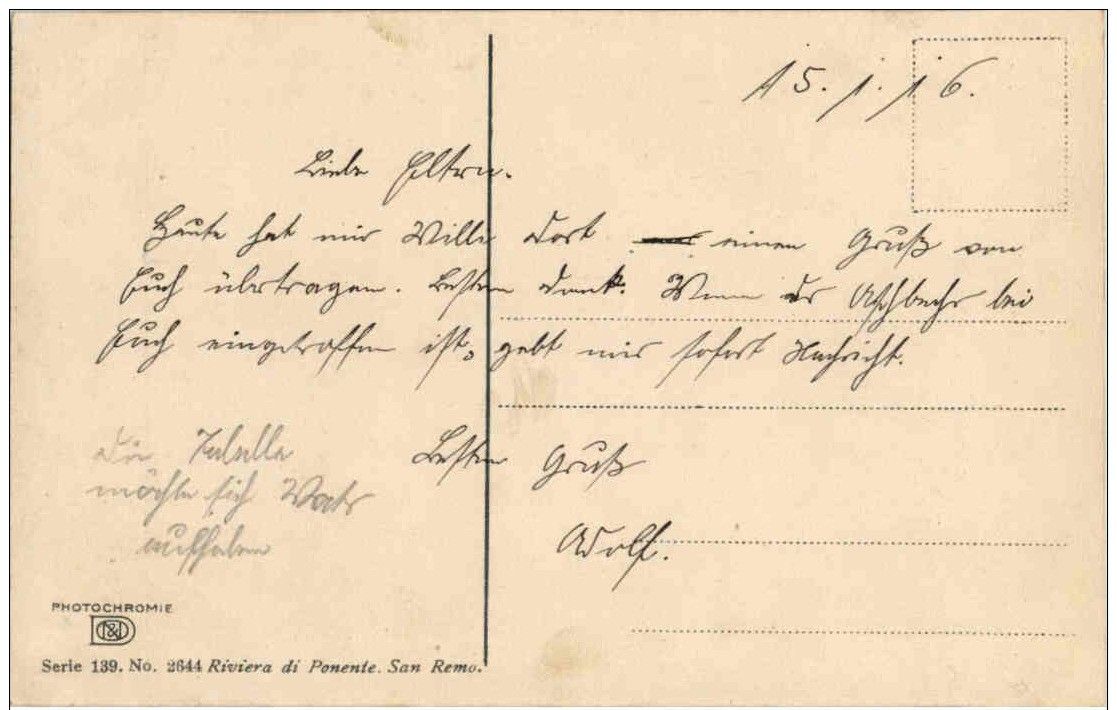 15.1.16.
Liebe Eltern.
Heute hat mir Willi dort einen Gruß von
Euch übertragen. Besten Dank. Wenn der bei
Euch eingetroffen ist, gebt mir sofort Nachricht.
Besten Gruß
Adolf.
Die Tabelle
möchte sich Vater
aufheben
PHOTOCHROMIE
Serie 139. No. 2644 Riviera di Ponente. San Remo.